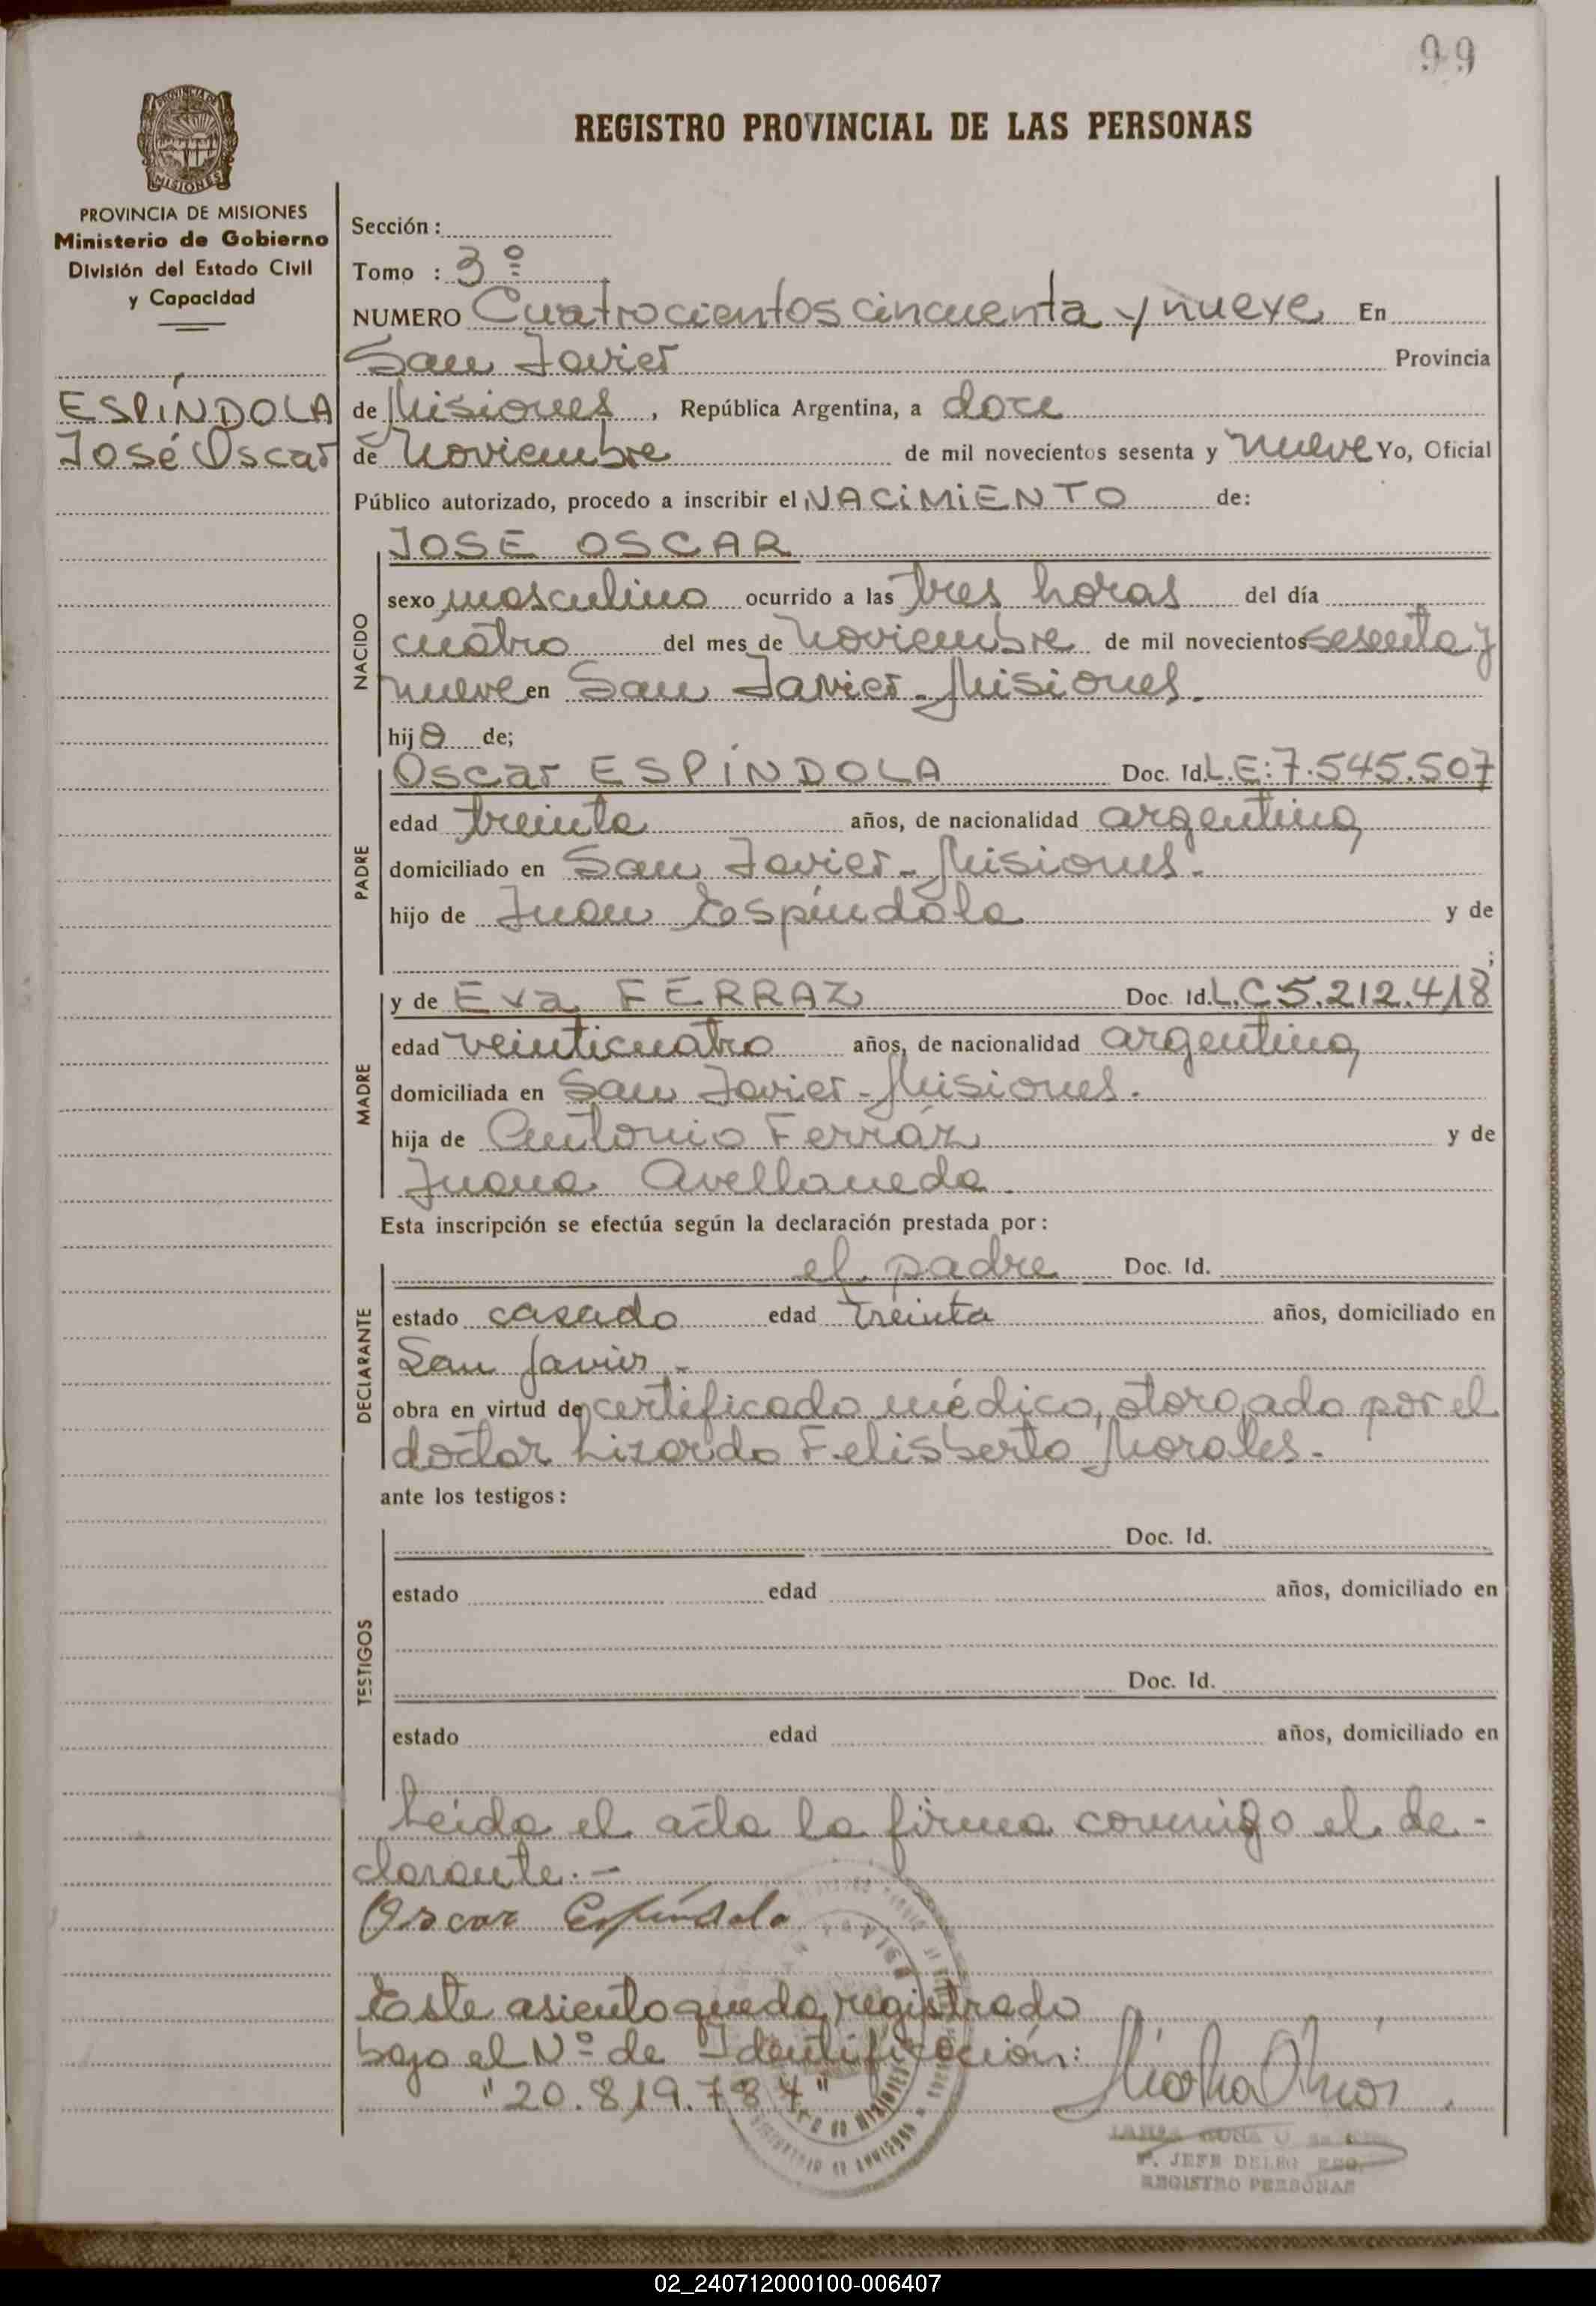 99
PROVINCIA DE MISIONES
MISIONES
REGISTRO PROVINCIAL DE LAS PERSONAS
PROVINCIA DE MISIONES
Ministerio de Gobierno
División del Estado Civil
y Capacidad
ESPÍNDOLA
José Oscar
Sección :
Tomo : 3º
NUMERO Cuatrocientos cincuenta y nueve En
San Javier Provincia
de Misiones, República Argentina, a doce
de Noviembre de mil novecientos sesenta y nueve Yo, Oficial
Público autorizado, procedo a inscribir el NACIMIENTO de:
JOSE OSCAR
NACIDO
sexo masculino ocurrido a las tres horas del día
cuatro del mes de Noviembre de mil novecientos sesenta y
nueve en San Javier - Misiones.
hijo de;
PADRE
Oscar ESPÍNDOLA Doc. Id. L.E: 7.545.507
edad treinta años, de nacionalidad argentina
domiciliado en San Javier - Misiones.
hijo de Juan Espíndola y de
;
MADRE
y de Eva FERRAZ Doc. Id. L.C 5.212.418
edad veinticuatro años, de nacionalidad argentina
domiciliada en San Javier - Misiones.
hija de Antonio Ferráz y de
Juana Avellaneda.
Esta inscripción se efectúa según la declaración prestada por:
DECLARANTE
el padre Doc. Id.
estado casado edad treinta años, domiciliado en
San Javier -
obra en virtud de certificado médico, otorgado por el
doctor Lizardo Felisberto Morales.-
ante los testigos:
TESTIGOS
Doc. Id.
estado edad años, domiciliado en
Doc. Id.
estado edad años, domiciliado en
Leida el acta la firma conmigo el de-
clarante.-
Oscar Espíndola
Este asiento queda registrado
bajo el Nº de Identificación:
"20.819.784"
JEFE DELEG
REGISTRO PERSONAS
02_240712000100-006407